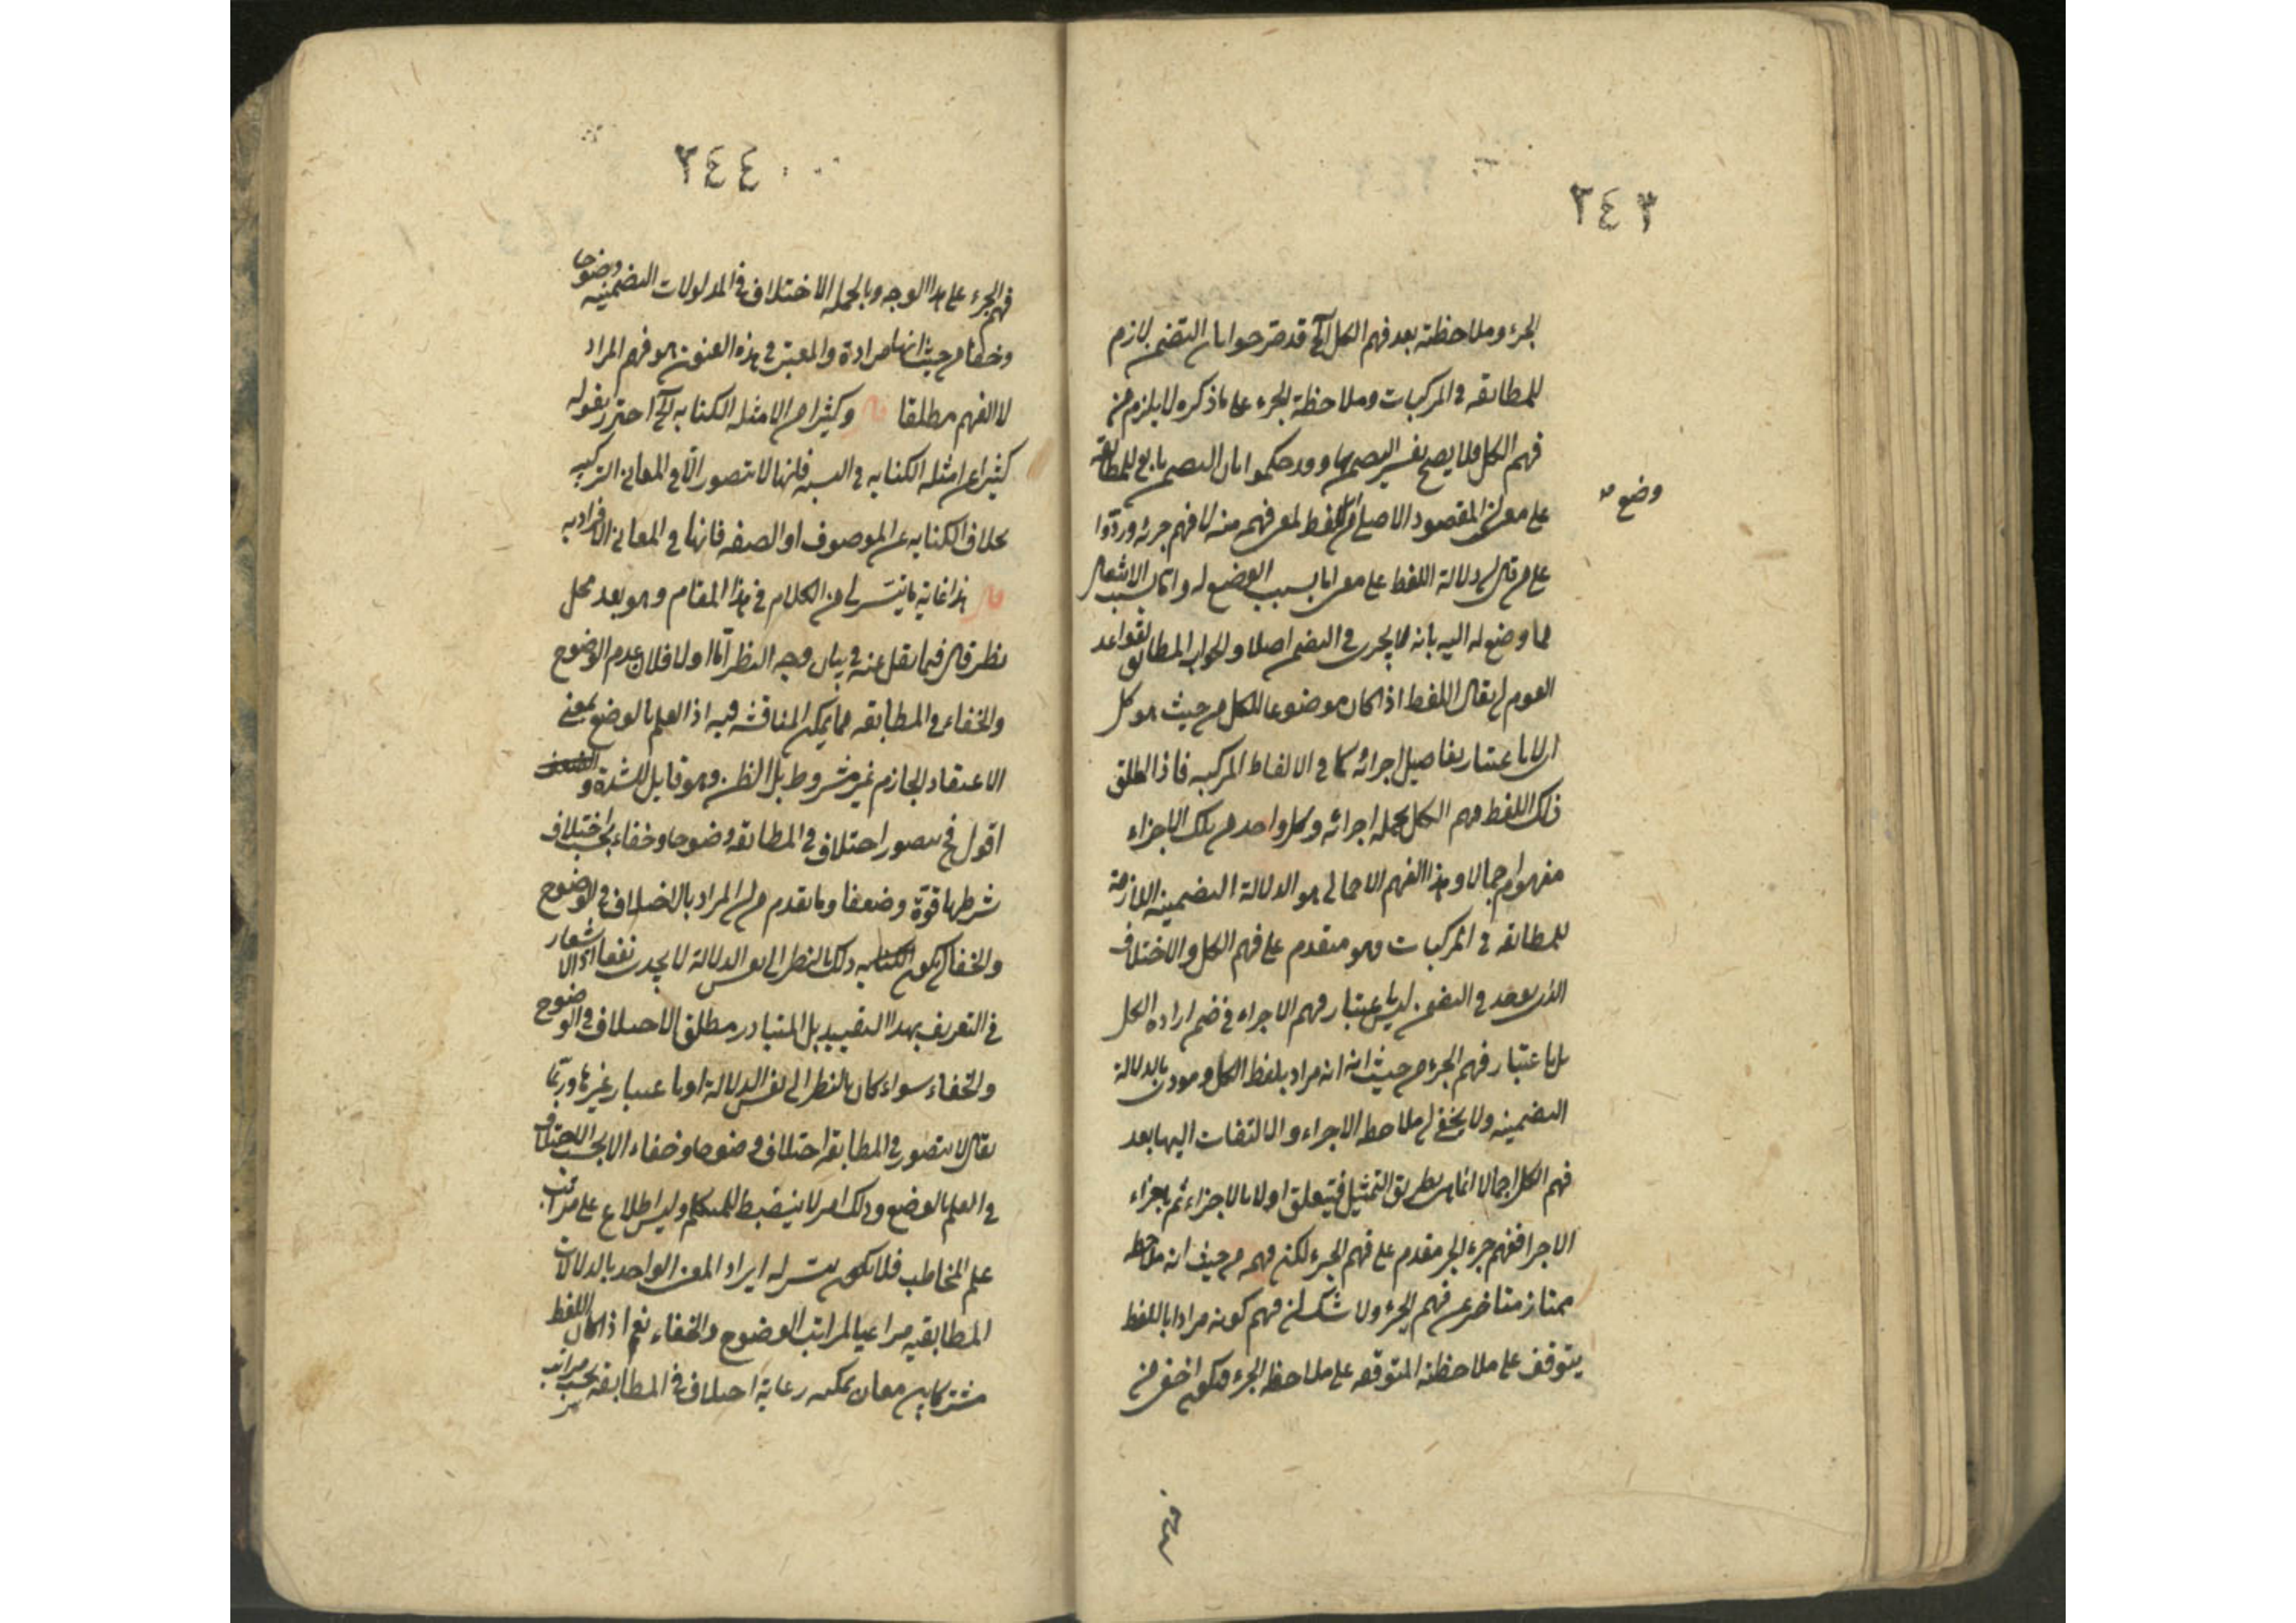 ٢٤٣
الجزء وملاحظته بعد فهم الكل الخ قد صرحوا بان التضمن لازم
للمطابقه في المركبات وملاحظة الجزء على ما ذكره لا يلزم من
فهم الكل فلا يصح تفسير التضمن بها وقد حكموا بان التضمن تابع للمطابقة
على معنى ان المقصود الاصلى من اللفظ لمعنى فهمه منه لا فهم جزئه وردّوا
وضع صح
على من قال ان دلالة اللفظ على معنى اما بسبب الوضع له واما بسبب الانتقال
مما وضع له اليه بانه لا يجرى في التضمن اصلا والجواب المطابق لقواعد
القوم ان يقال اللفظ اذا كان موضوعا للكل من حيث هو كل
اى لا باعتبار تفاصيل اجزائه كما في الالفاظ المركبه فاذا اطلق
ذلك اللفظ فهم الكل بجملة اجزائه وكل واحد من تلك الاجزاء
مفهوم اجمالا وهذا الفهم الاجمالى هو الدلالة التضمنيه اللازمة
للمطابقه في المركبات وهو متقدم على فهم الكل والاختلاف
الذى يوجد في التضمن ليس باعتبار فهم الاجزاء في ضمن ارادة الكل
بل باعتبار فهم الجزء من حيث انه مراد بلفظ الكل ومودى بالدلالة
التضمنيه ولا يخفى ان ملاحظة الاجزاء والالتفات اليها بعد
فهم الكل اجمالا انما هى بطريق التمثيل فيتعلق اولا بالاجزاء ثم باجزاء
الاجزا ففهم جزء الجزء مقدم على فهم الجزء لكن فهمه من حيث انه ملاحظ
ممتاز متاخر عن فهم الجزء ولا شك ان فهم كونه مرادا باللفظ
يتوقف على ملاحظته المتوقفه على ملاحظة الجزء فيكون اخفى من
٢٤٤
فهم الجزء على هذا الوجه وبالجمله الاختلاف في المدلولات التضمنيه وضوحا
وخفاء من حيث انها مرادة والمعتبر في هذه الفنون هو فهم المراد
لا الفهم مطلقا قال وكثيرا من الامثله الكنايه الخ احترز بقوله
كثيرا عن امثله الكنايه في النسبه فانها لا تتصور الّا في المعانى التركيبيه
بخلاف الكنايه عن الموصوف او الصفه فانها في المعانى الافراديه
قال هذا غاية ما تيسّر لى من الكلام في هذا المقام وهو بعد محل
نظر قال فيما نقل عنه في بيان وجه النظر امّا اولا فلان عدم الوضوح
والخفاء في المطابقه مما يمكن المناقشه فيه اذ العلم بالوضع بمعنى
الاعتقاد الجازم غير مشروط بل الظن وهو قابل للشدة والضعف
اقول فح يتصور اختلاف في المطابقه وضوحا وخفاء بحسب اختلاف
شرطها قوّة وضعفا وما تقدم من ان المراد بالاختلاف في الوضوح
والخفا ان يكون ذلك بالنظر الى نفس الدلالة لا يجدى نفعا اذ لا اشعار
في التعريف بهذا التقييد بل المتبادر مطلق الاختلاف في الوضوح
والخفاء سواء كان بالنظر الى نفس الدلالة او باعتبار غيرها وربما
يقال لا يتصور في المطابقه اختلاف وضوحا وخفاء الا بحسب الاختلاف
في العلم بالوضع وذلك امر لا ينضبط للمتكلم وليس له اطلاع على مراتب
علم المخاطب فلا يكون يتيسر له ايراد المعنى الواحد بالدلالات
المطابقيه مراعيا لمراتب الوضوح والخفاء نعم اذا كان اللفظ
مشتركا بين معان يمكنه رعاية اختلاف في المطابقه بحسب مراتب